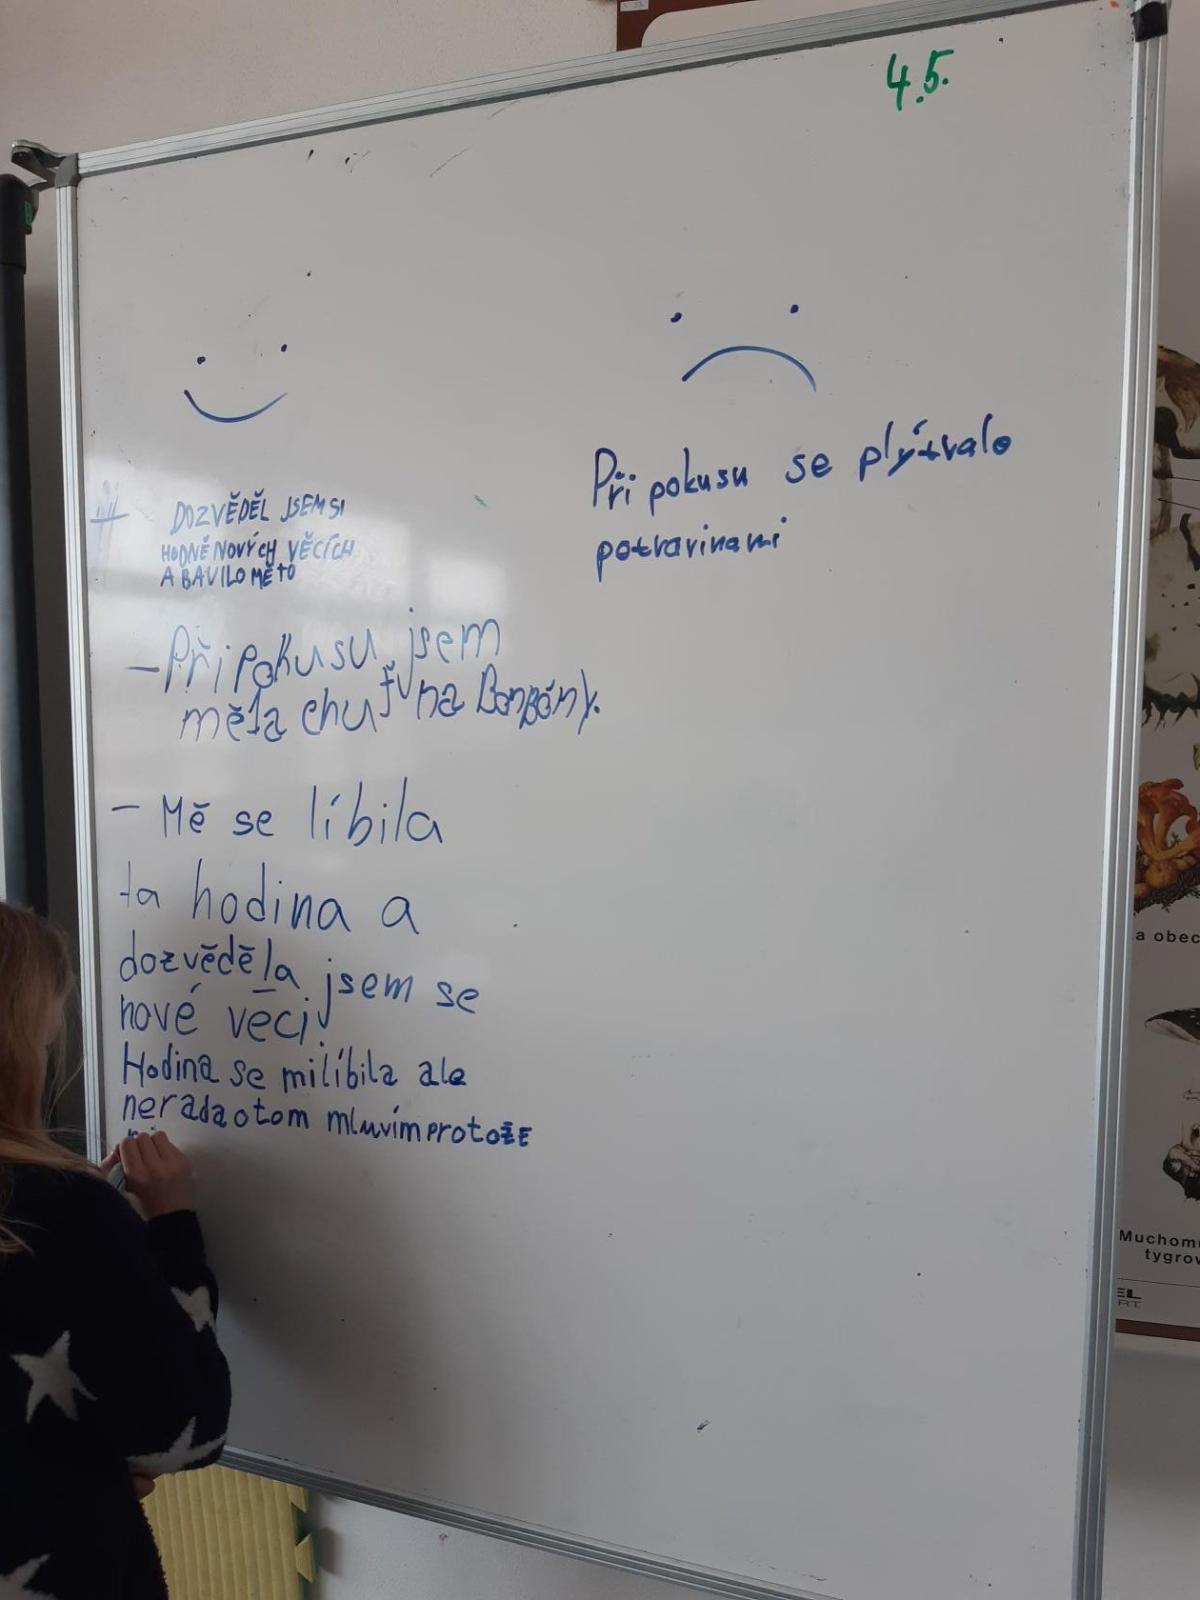 4.5.
DOZVĚDĚL JSEM SI
HODNĚ NOVÝCH VĚCÍCH
A BAVILO MĚ TO
- Při pokusu jsem
měla chuť na Bonbóny.
- Mě se líbila
ta hodina a
dozvěděla jsem se
nové věci.
Hodina se mi líbila ale
nerada o tom mluvím protože
Při pokusu se plýtvalo
potravinami
a obec
Muchomů
tygrov